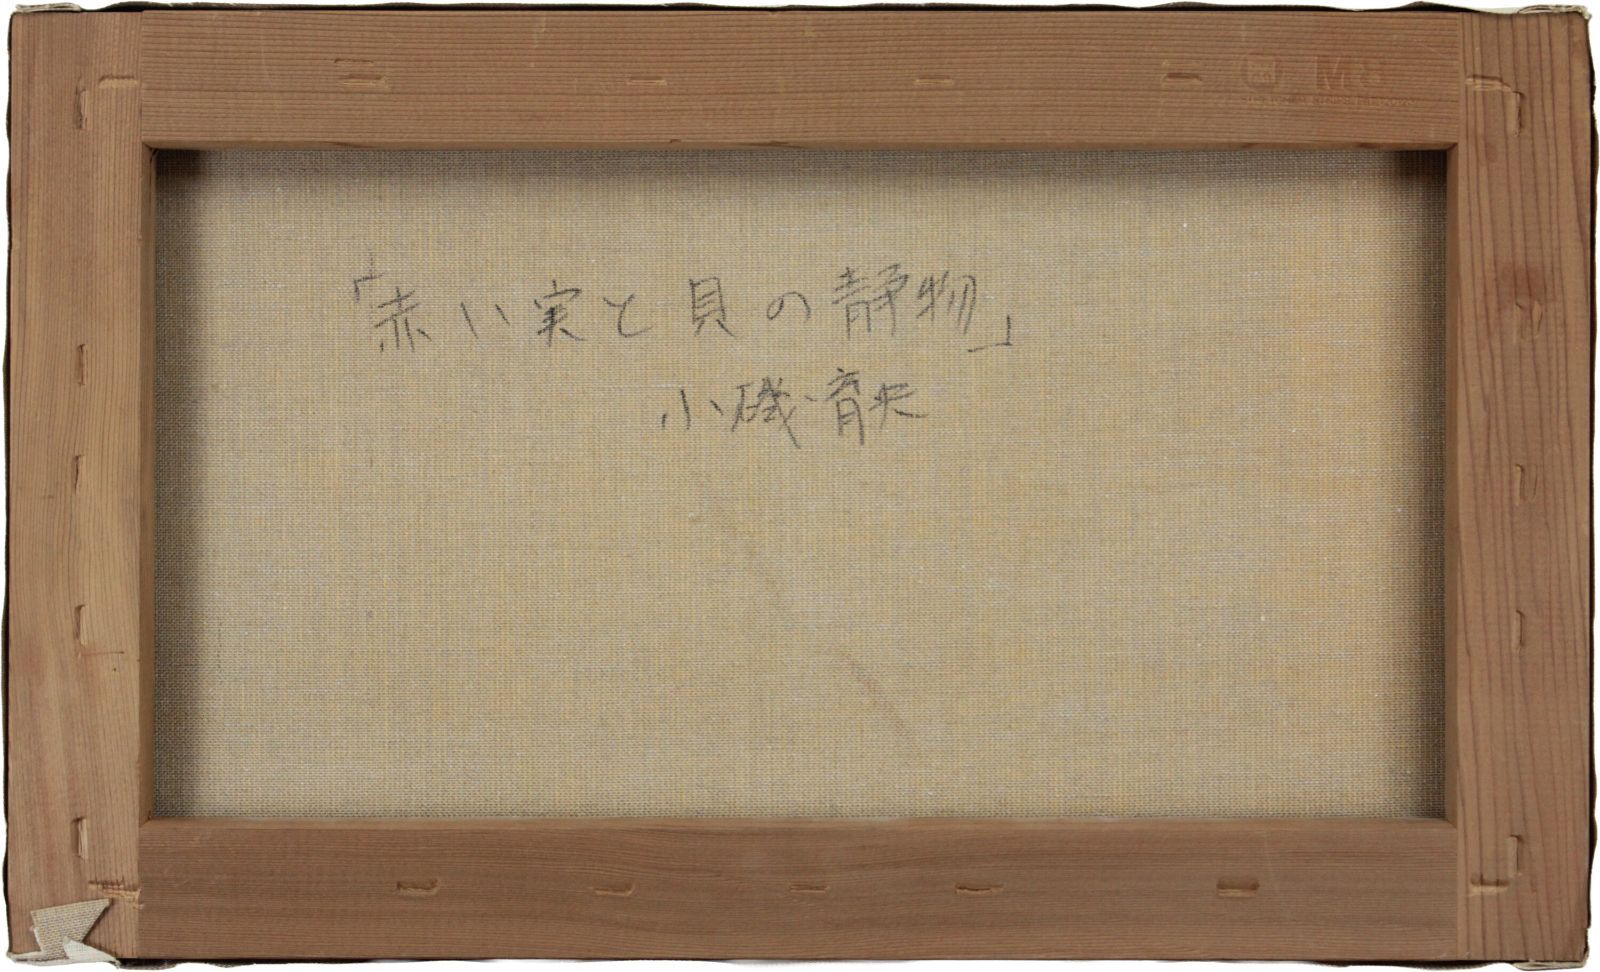 「赤い実と貝の静物」
小磯育央
M8